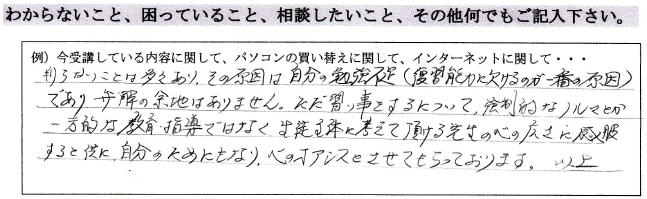 わからないこと、困っていること、相談したいこと、その他何でもご記入下さい。
例）今受講している内容に関して、パソコンの買い替えに関して、インターネットに関して・・・
判らないことは多々あり、その原因は自分の勉強不足（復習能力に欠けるのが一番の原因）
であり弁解の余地はありません。ただ習い事とするについて、強制的なノルマとか
一方的な教育指導ではなく生徒主体に考えて頂ける先生の心の広さに感服
すると供に、自分のためにもなり、心のオアシスとさせてもらっております。以上